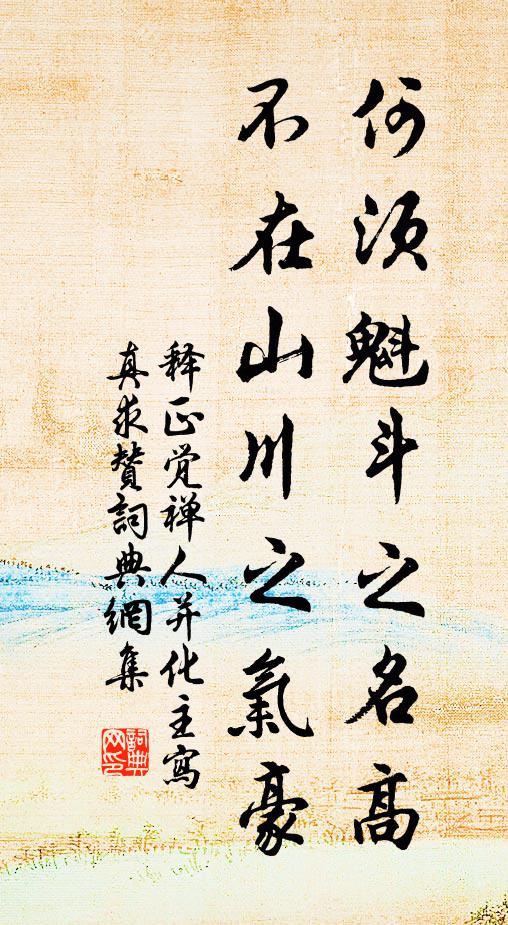 何须魁斗之名高
不在山川之氣豪
释正觉禅人并化主寫
真求贊詞典網集
詞典网印